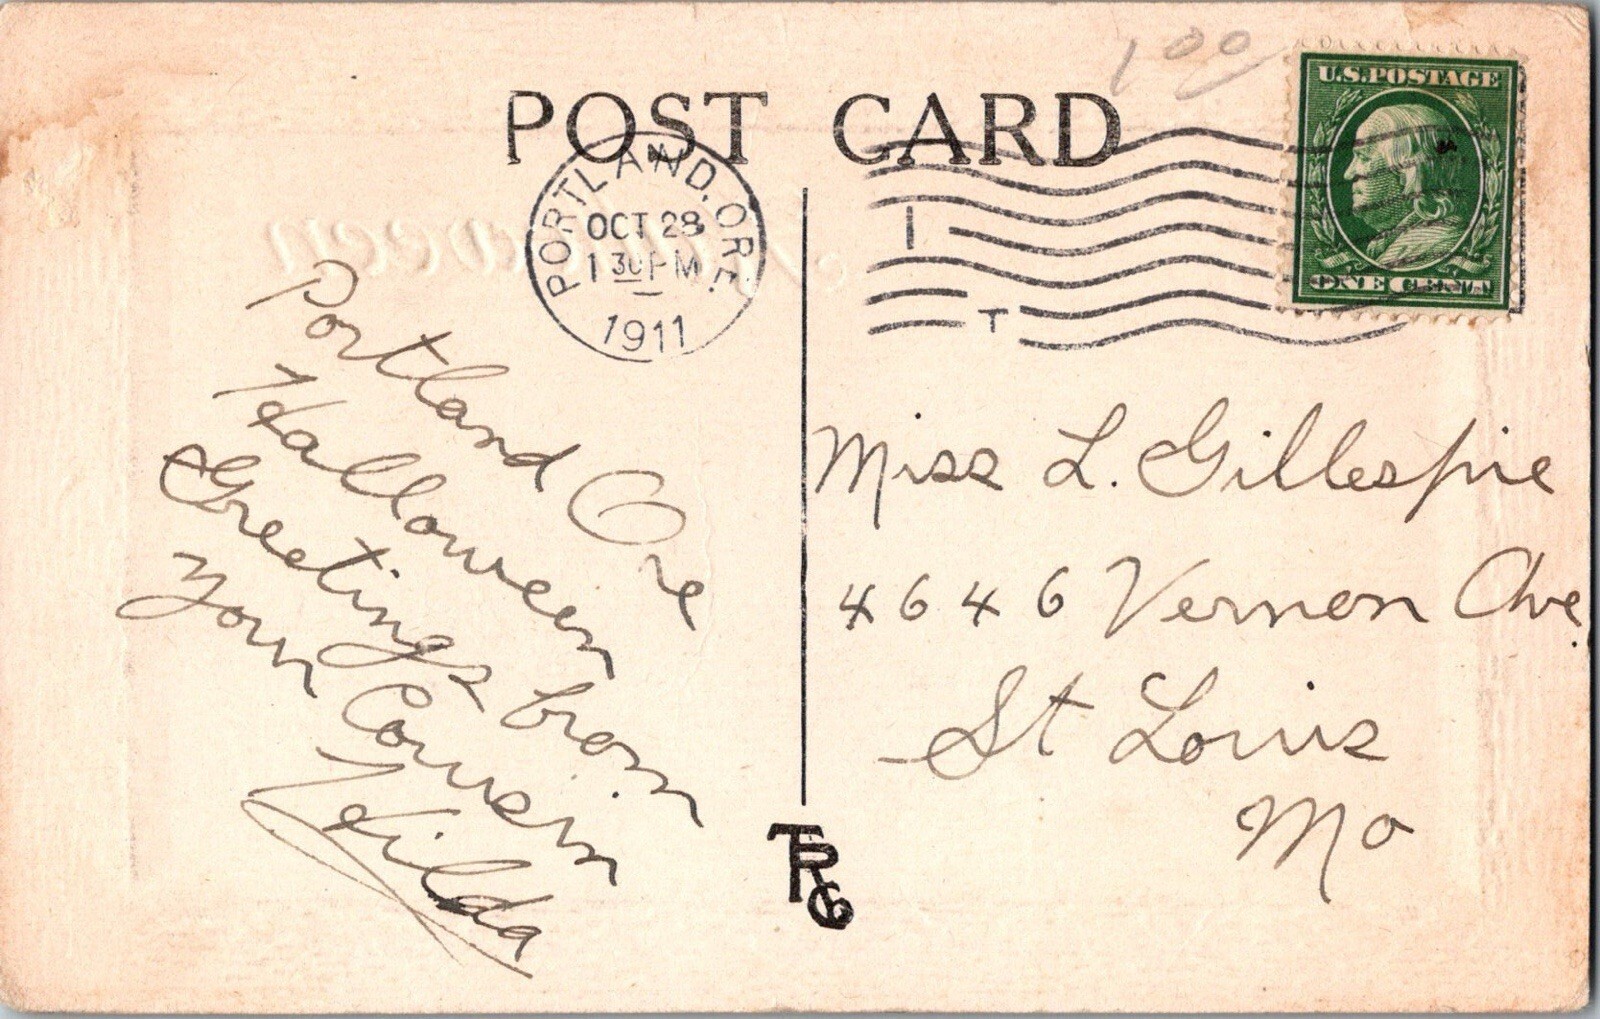 1 00
POST CARD
U.S. POSTAGE
ONE CENT
PORTLAND, ORE.
OCT 28
1 30 PM
1911
I
T
Portland Ore
Halloween
Greetings from
your Cousin
Hilda
Miss L. Gillespie
4646 Vernon Ave.
St Louis
Mo
TRG